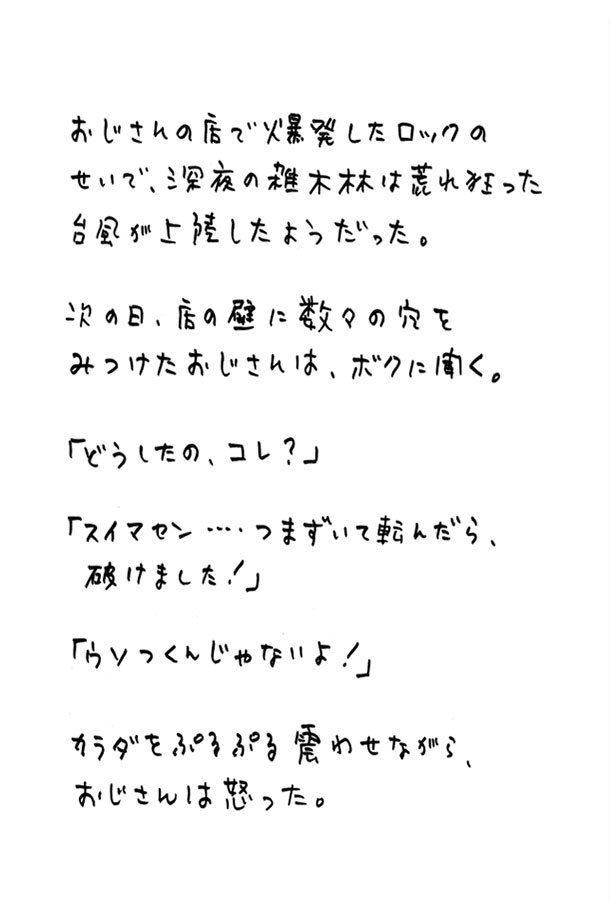 おじさんの店で爆発したロックの
せいで、深夜の雑木林は荒れ狂った
台風が上陸したようだった。
次の日、店の壁に数々の穴を
みつけたおじさんは、ボクに聞く。
「どうしたの、コレ？」
「スイマセン ‥‥ つまずいて転んだら、
破けました！」
「ウソつくんじゃないよ！」
カラダをぷるぷる震わせながら、
おじさんは怒った。